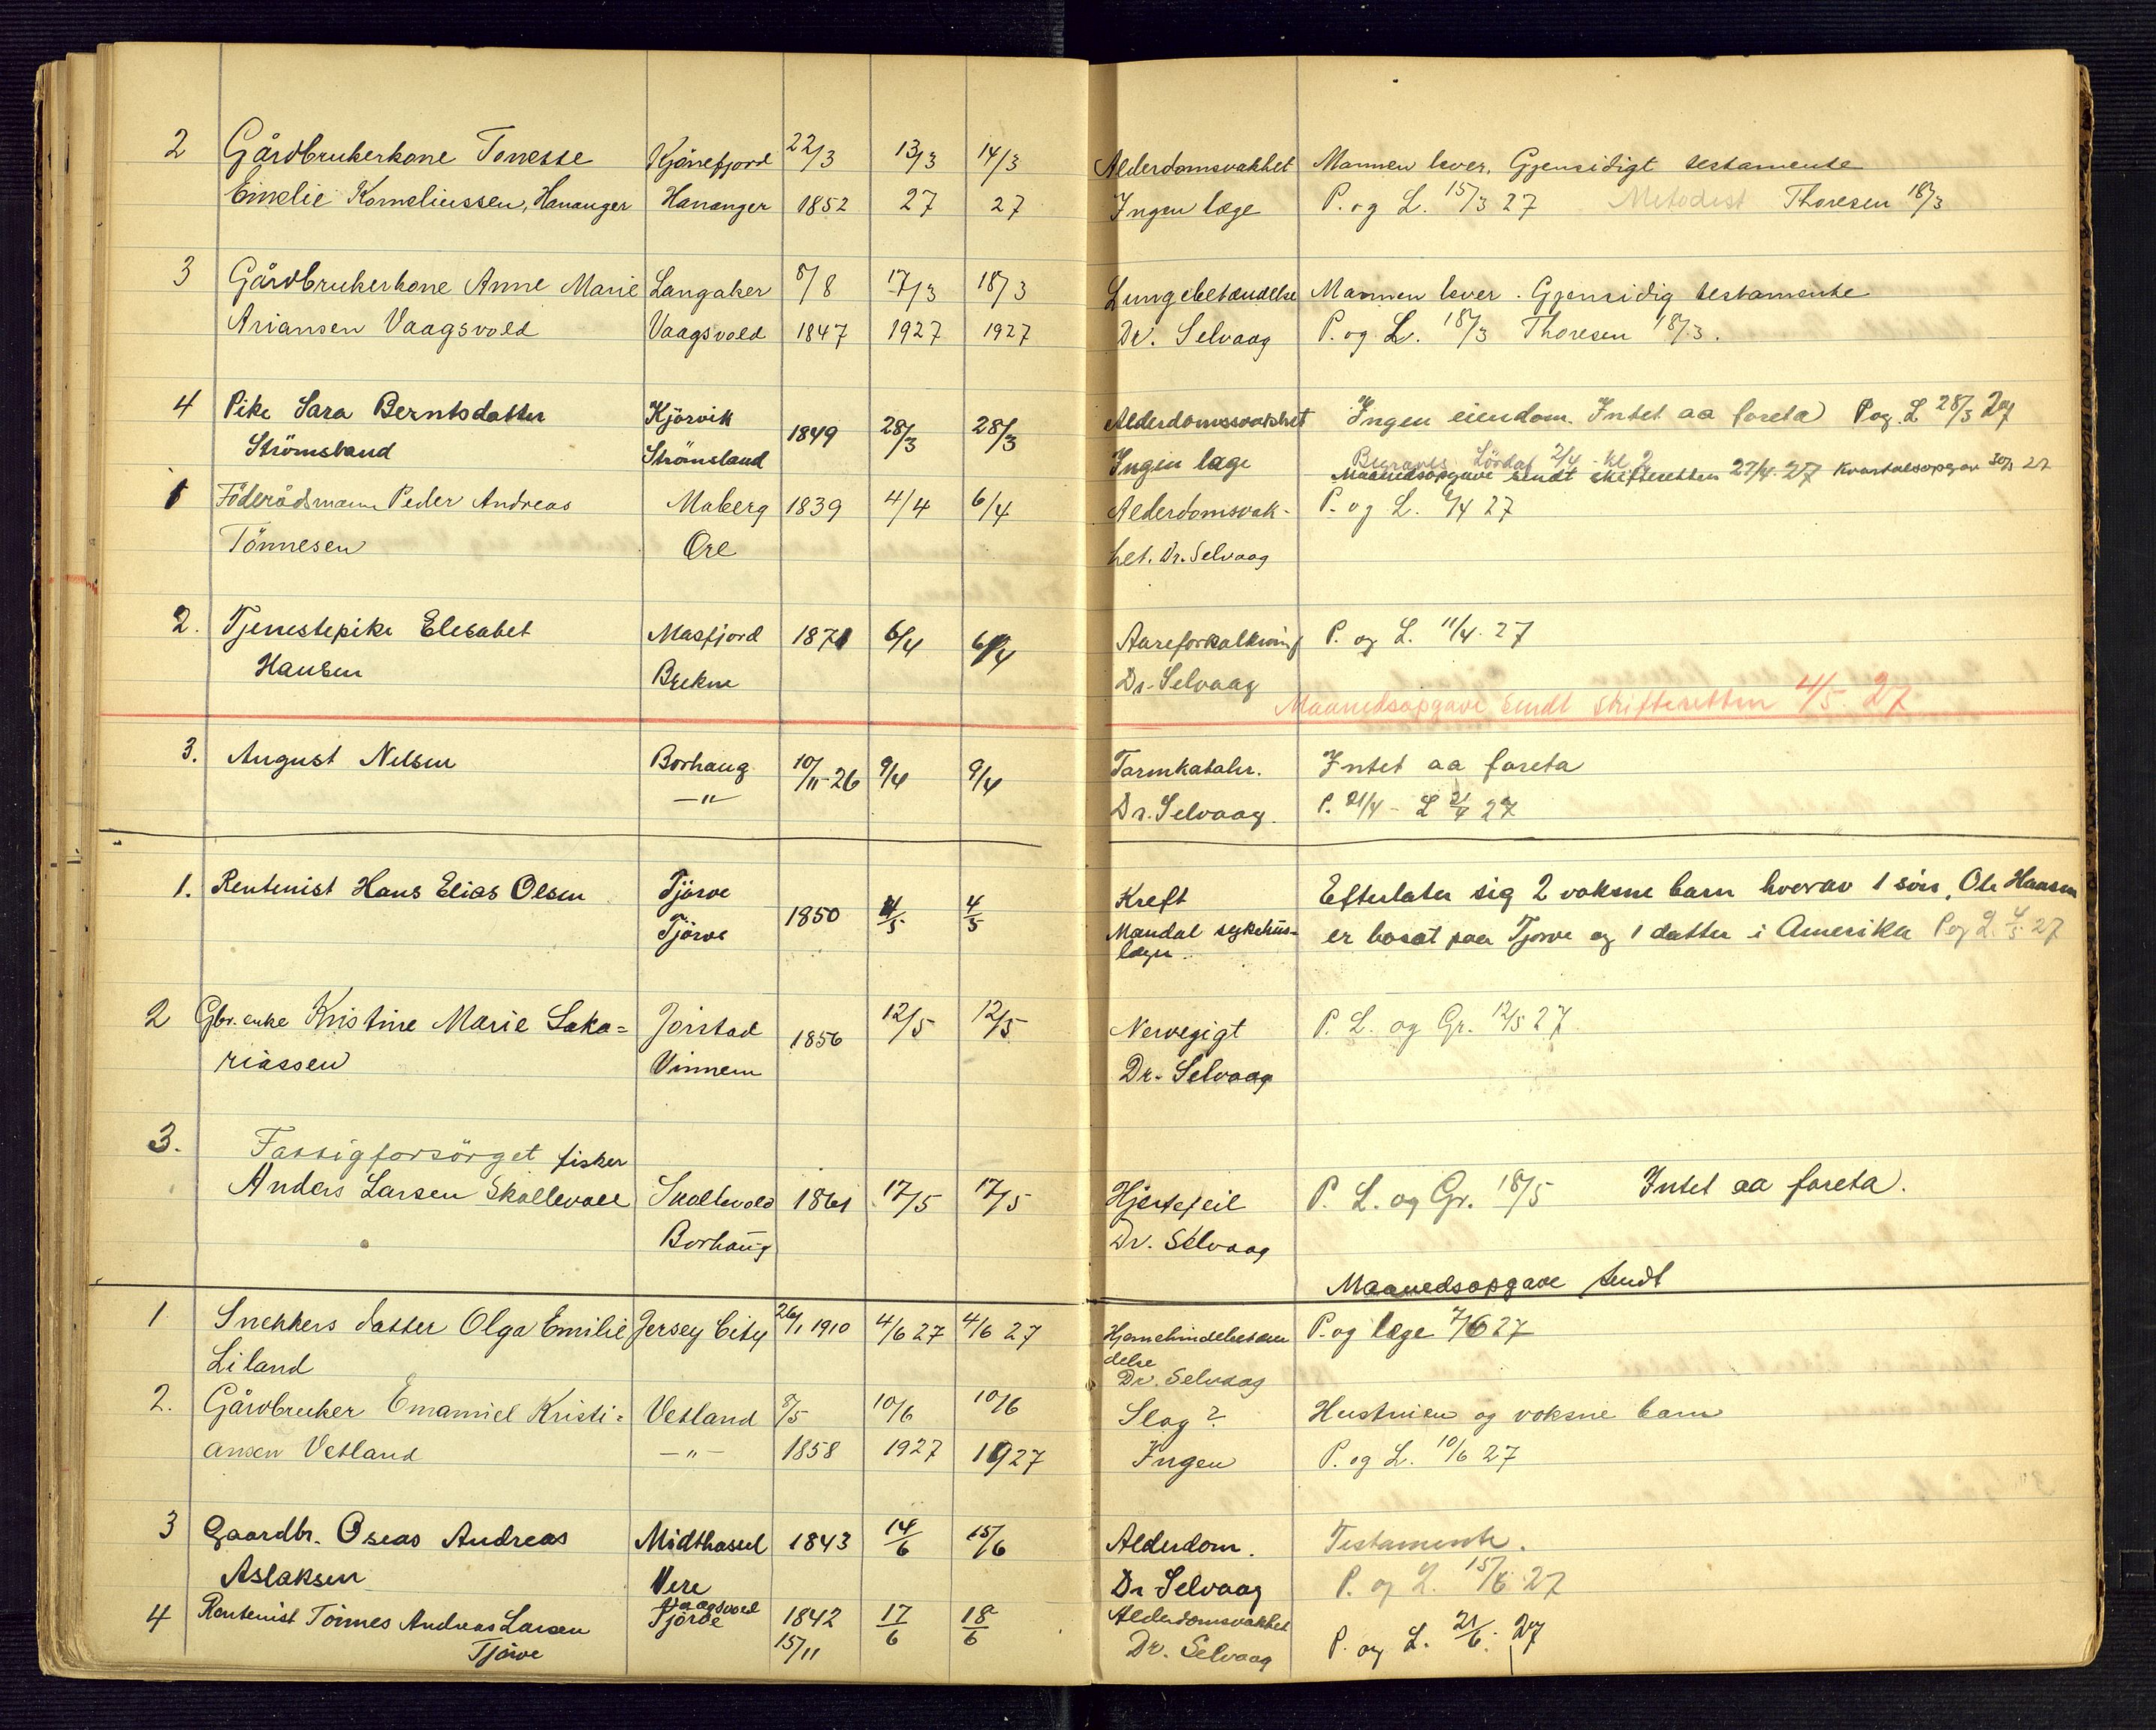 2 Gårdbrukerkone Tonesse Kjönefjord 22/3 13/3 14/3 Alderdomsvakhet Mannen lever. Gjensidigt testamente
Emelie Korneliussen, Hananger Hananger 1852 27 27 Ingen læge P. og L. 15/3 27 Metodist Thoresen 18/3
3 Gårdbrukerkone Anne Marie Langaker 8/8 17/3 18/3 Lungebetændelse Mannen lever. Gjensidig testamente
Ariansen Vaagsvold Vaagsvold 1847 1927 1927 Dr. Selvaag P. og L. 18/3 Thoresen 18/3.
4 Pike Sara Berntsdatter Kjörvik 1849 28/3 28/3 Alderdomssvakhet Ingen eiendom. Intet aa foreta P og. L 28/3 27
Strömsland Strömsland Ingen læge Begraves Lördag 2/4 kl 2
Maanedsopgave sendt skifteretten 27/4-27 Kvartalsopgav 30/3 27
1 Föderådsmann Peder Andreas Maberg 1839 4/4 6/4 Alderdomsvak- P. og L. 6/4 27
Tönnesen Ore het. Dr. Selvaag
2. Tjenestepike Elesabet Masfjord 1871 6/4 6/4 Aareforkalkning P. og L. 11/4. 27
Hansen Brekne Dr. Selvaag
Maanedsopgave sendt skifteretten 4/5. 27
3. August Nilsen Borhaug 10/11-26 9/4 9/4 Tarmkatahr. Intet aa foreta
—"— Dr. Selvaag. P. 21/4 - L 21/4 27
1. Rentenist Hans Elias Olsen Tjörve 1850 4/5 4/5 Kreft Efterlater sig 2 voksne barn hvorav 1 sön, Ole Hansen
Tjörve Mandal sykehus- er bosat paa Tjörve og 1 datter i Amerika P og L. 4/5 27
læge.
2 Gbr. enke Kristine Marie Saka= Jörstad 1856 12/5 12/5 Nervegigt P. L. og Gr. 12/5 27.
riassen Vinnem Dr. Selvaag
3. Fattigforsörget fisker
Anders Larsen Skollevoll Skollevold 1861 17/5 17/5 Hjertefeil P. L. og Gr. 18/5 Intet aa foreta.
Borhaug Dr. Selvaag
Maanedsopgave sendt
1 Snekkers datter Olga Emilie Jersey City 26/1 1910 4/6 27 4/6 27 Hjernehindebetæn P. og læge 7/6 27
Liland delse
Dr. Selvaag
2. Gårdbruker Emanuel Kristi= Vetland 8/5 10/6 10/6 Slag? Hustruen og voksne barn
ansen Vetland —"— 1858 1927 1927 Ingen P. og L. 10/6 27
3 Gaardbr. Oseas Andreas Midthassel 1843 14/6 15/6 Alderdom. Testamente.
Aslaksen Vere Dr Selvaag P. og L. 15/6 27
4 Rentenist Tönnes Andreas Larsen Vaagsvold Tjörve 1842 17/6 18/6 Alderdomsvakhet P. og L. 21/6. 27
Tjörve 15/11 Dr. Selvaag